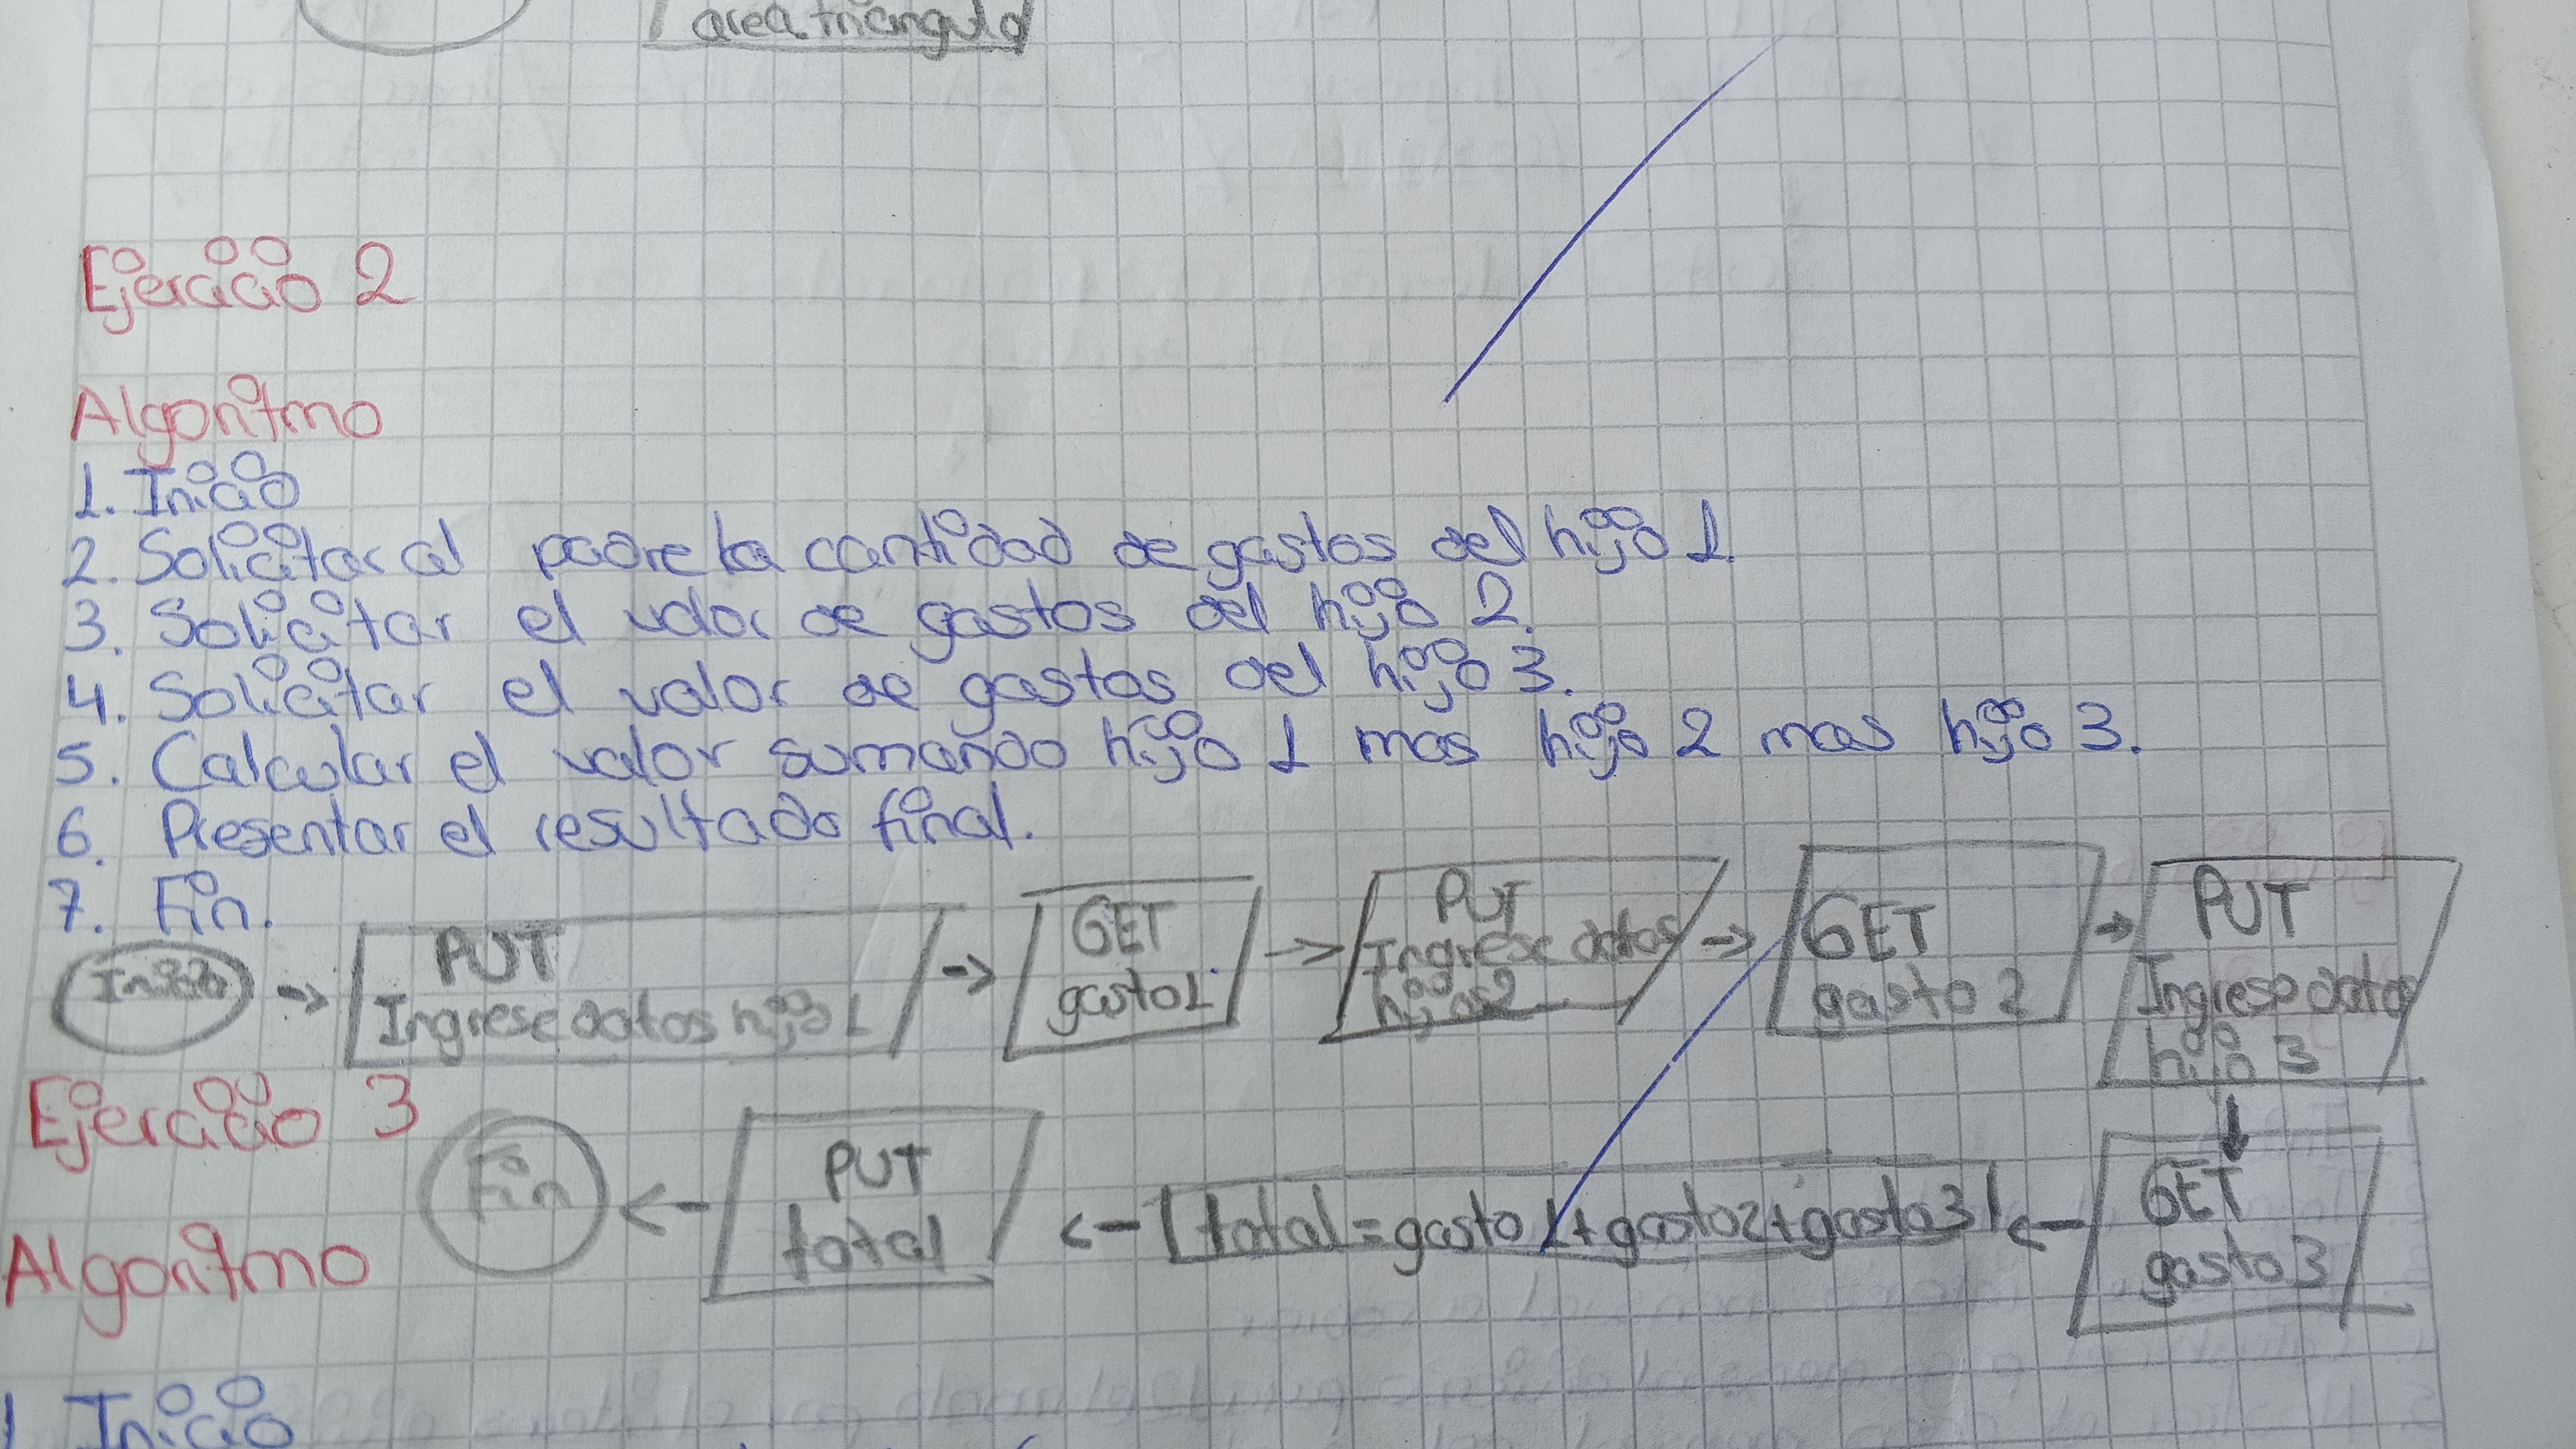 area triangulo
Ejercicio 2
Algoritmo
1. Inicio
2. Solicitar al padre la cantidad de gastos del hijo 1.
3. Solicitar el valor de gastos del hijo 2.
4. Solicitar el valor de gastos del hijo 3.
5. Calcular el valor sumando hijo 1 mas hijo 2 mas hijo 3.
6. Presentar el resultado final.
7. Fin.
Inicio -> PUT
Ingrese datos hijo 1
-> GET
gasto1
-> PUT
Ingrese datos
hijos2
-> GET
gasto 2
-> PUT
Ingrese datos
hijo 3
GET
gasto 3
<- total=gasto 1+gasto2+gasto3
<- PUT
total
<- Fin
Ejercicio 3
Algoritmo
1 Inicio